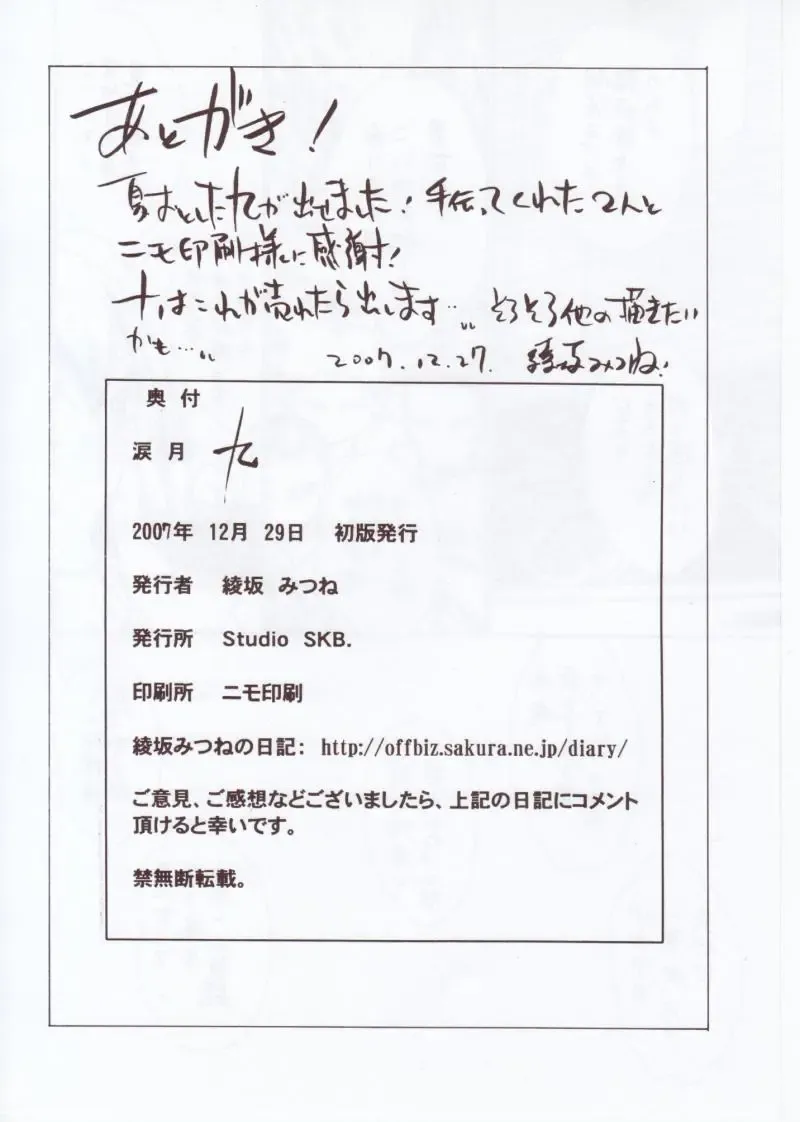 あとがき!
夏おとした九が出せました!手伝ってくれた2人と
ニモ印刷様に感謝!
十はこれが売れたら出します…。そろそろ他の描きたい
かも…。
2007.12.27. 綾坂みつね!
奥付
涙月 九
2007年 12月 29日 初版発行
発行者 綾坂 みつね
発行所 Studio SKB.
印刷所 ニモ印刷
綾坂みつねの日記: http://offbiz.sakura.ne.jp/diary/
ご意見、ご感想などございましたら、上記の日記にコメント
頂けると幸いです。
禁無断転載。